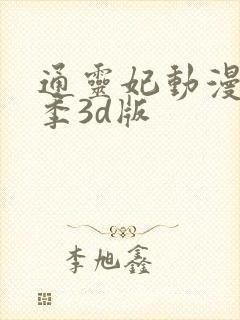 通靈妃動漫
季3d版
李旭鑫